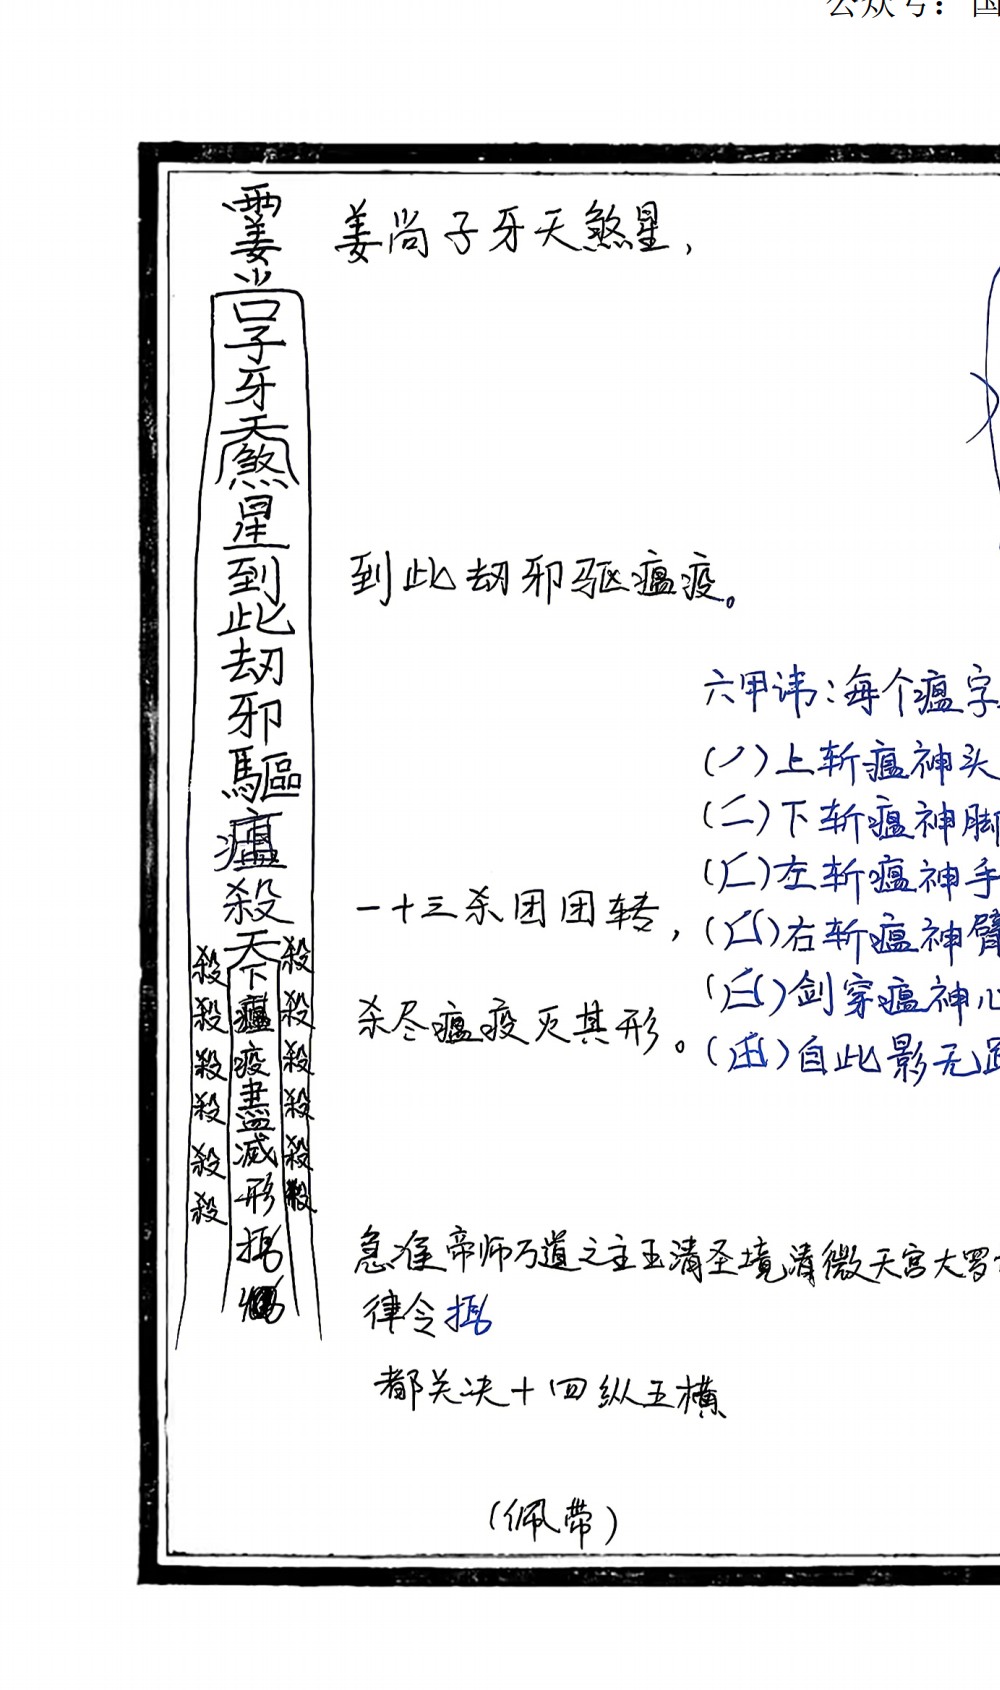 公众号：国
姜尚子牙天煞星，
到此劫邪驱瘟疫。
一十三杀团团转，
杀尽瘟疫灭其形。
急准帝师万道之主玉清圣境清微天宫大罗
律令
都关决十四纵五横
（佩带）
六甲讳：每个瘟字
上斩瘟神头
（二）下斩瘟神脚
左斩瘟神手
右斩瘟神臂
剑穿瘟神心
自此影无
姜
尚
子
牙
天
煞
星
到
此
劫
邪
驅
瘟
殺
天
下
瘟
疫
盡
滅
形
殺
殺
殺
殺
殺
殺
殺
殺
殺
殺
殺
殺